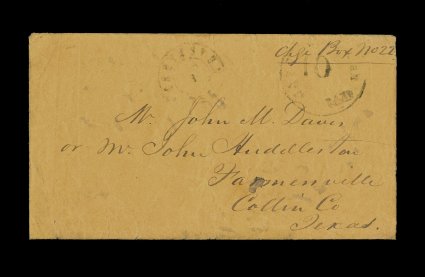 Chge Box No 22
10
Mr. John M. Davis
or Mr John Huddleston
Farmersville
Collin Co
Texas.